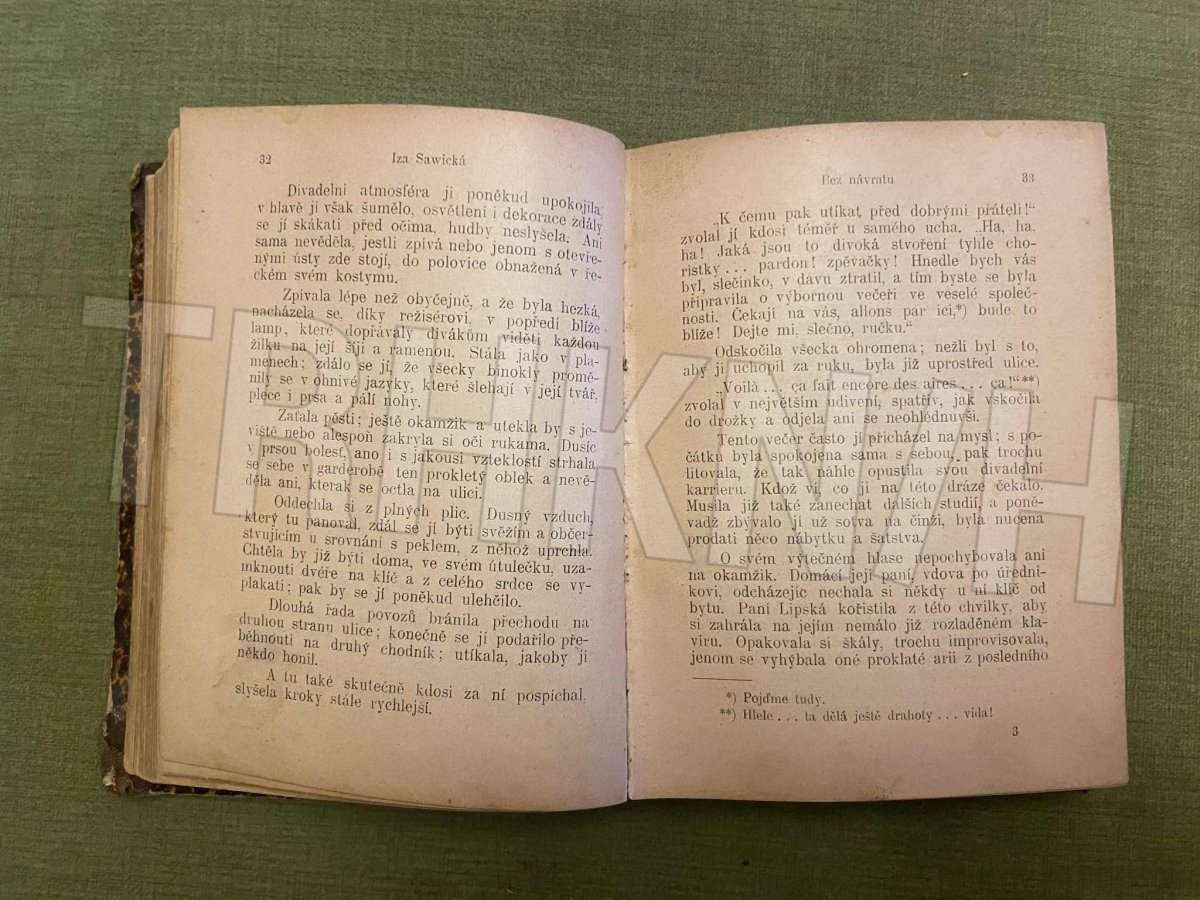 32 Iza Sawická
Divadelní atmosféra ji poněkud upokojila,
v hlavě jí však šumělo, osvětlení i dekorace zdály
se jí skákati před očima, hudby neslyšela. Ani
sama nevěděla, jestli zpívá nebo jenom s otevře-
nými ústy zde stojí, do polovice obnažená v ře-
ckém svém kostymu.
Zpívala lépe než obyčejně, a že byla hezká,
nacházela se, díky režisérovi, v popředí blíže
lamp, které dopřávaly divákům viděti každou
žilku na její šíji a ramenou. Stála jako v pla-
menech; zdálo se jí, že všecky binokly promě-
nily se v ohnivé jazyky, které šlehají v její tvář,
plece i prsa a pálí nohy.
Zaťala pěsti; ještě okamžik a utekla by s je-
viště nebo alespoň zakryla si oči rukama. Dusíc
v prsou bolest, ano i s jakousi vzteklostí strhala
se sebe v garderobě ten prokletý oblek a nevě-
děla ani, kterak se octla na ulici.
Oddechla si z plných plic. Dusný vzduch,
který tu panoval, zdál se jí býti svěžím a občer-
stvujícím u srovnání s peklem, z něhož uprchla.
Chtěla by již býti doma, ve svém útulečku, uza-
mknouti dvéře na klíč a z celého srdce se vy-
plakati; pak by se jí poněkud ulehčilo.
Dlouhá řada povozů bránila přechodu na
druhou stranu ulice; konečně se jí podařilo pře-
běhnouti na druhý chodník; utíkala, jakoby ji
někdo honil.
A tu také skutečně kdosi za ní pospíchal,
slyšela kroky stále rychlejší.
Bez návratu 33
„K čemu pak utíkat před dobrými přáteli!“
zvolal jí kdosi téměř u samého ucha. „Ha, ha,
ha! Jaká jsou to divoká stvoření tyhle cho-
ristky... pardon! zpěvačky! Hnedle bych vás
byl, slečinko, v davu ztratil, a tím byste se byla
připravila o výbornou večeři ve veselé společ-
nosti. Čekají na vás, allons par ici,*) bude to
blíže! Dejte mi, slečno, ručku.“
Odskočila všecka ohromena; nežli byl s to,
aby ji uchopil za ruku, byla již uprostřed ulice.
„Voilà... ça fait encore des aires... ça!“**)
zvolal v největším udivení, spatřiv, jak vskočila
do drožky a odjela ani se neohlédnuvši.
Tento večer často jí přicházel na mysl; s po-
čátku byla spokojena sama s sebou, pak trochu
litovala, že tak náhle opustila svou divadelní
karrieru. Kdož ví, co ji na této dráze čekalo.
Musila již také zanechat dalších studií, a poně-
vadž zbývalo jí už sotva na činži, byla nucena
prodati něco nábytku a šatstva.
O svém výtečném hlase nepochybovala ani
na okamžik. Domácí její paní, vdova po úředni-
kovi, odcházejíc nechala si někdy u ní klíč od
bytu. Paní Lipská kořistila z této chvilky, aby
si zahrála na jejím nemálo již rozladěném kla-
víru. Opakovala si škály, trochu improvisovala,
jenom se vyhýbala oné proklaté arii z posledního
*) Pojďme tudy.
**) Hlele... ta dělá ještě drahoty... vida!
3
TRHKNIH